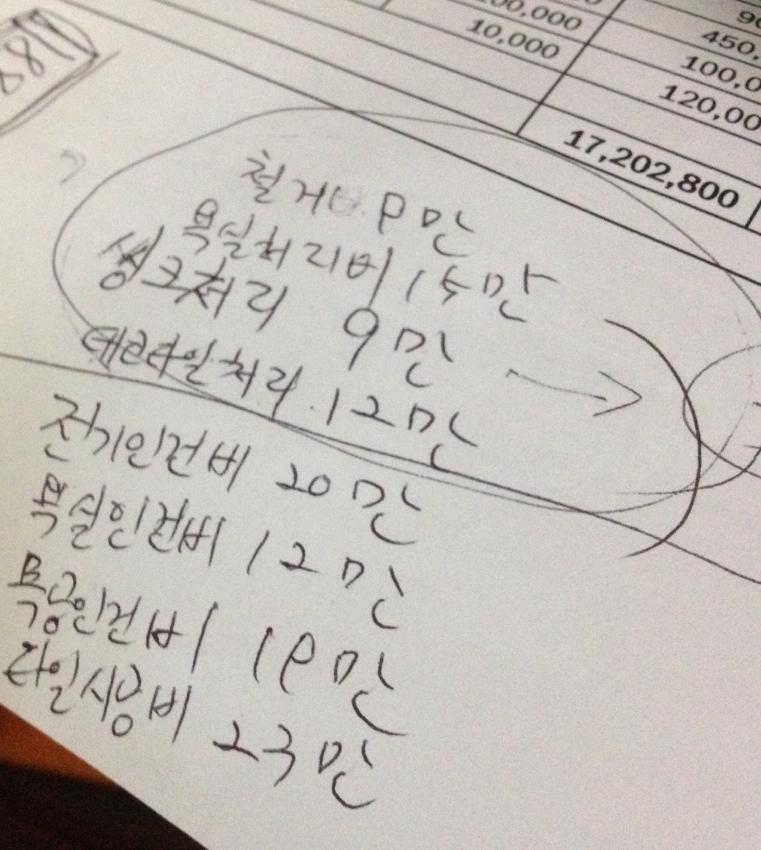 10,000
450,
100,0
120,00
17,202,800
철거비 8만
욕실처리비 15만
씽크처리 9만
데코타일처리 12만
전기인건비 20만
욕실인건비 12만
목공인건비 18만
타일시공비 23만